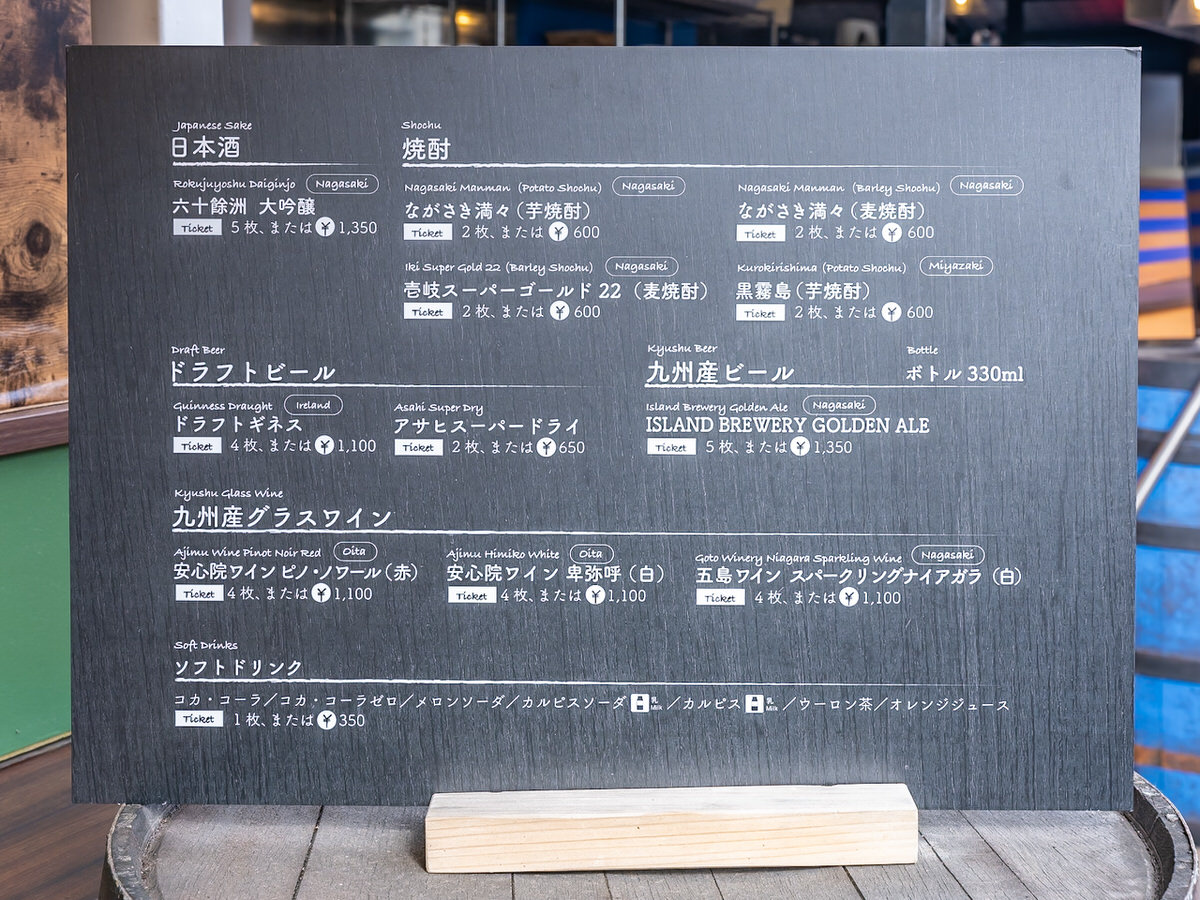 Japanese Sake
日本酒
Rokujuyoshu Daiginjo Nagasaki
六十餘洲 大吟醸
Ticket 5枚、または¥1,350
Shochu
焼酎
Nagasaki Manman (Potato Shochu) Nagasaki
ながさき満々(芋焼酎)
Ticket 2枚、または¥600
Nagasaki Manman (Barley Shochu) Nagasaki
ながさき満々(麦焼酎)
Ticket 2枚、または¥600
Iki Super Gold 22 (Barley Shochu) Nagasaki
壱岐スーパーゴールド 22 (麦焼酎)
Ticket 2枚、または¥600
Kurokirishima (Potato Shochu) Miyazaki
黒霧島(芋焼酎)
Ticket 2枚、または¥600
Draft Beer
ドラフトビール
Guinness Draught Ireland
ドラフトギネス
Ticket 4枚、または¥1,100
Asahi Super Dry
アサヒスーパードライ
Ticket 2枚、または¥650
Kyushu Beer Bottle
九州産ビール ボトル 330ml
Island Brewery Golden Ale Nagasaki
ISLAND BREWERY GOLDEN ALE
Ticket 5枚、または¥1,350
Kyushu Glass Wine
九州産グラスワイン
Ajimu Wine Pinot Noir Red Oita
安心院ワイン ピノ・ノワール(赤)
Ticket 4枚、または¥1,100
Ajimu Himiko White Oita
安心院ワイン 卑弥呼(白)
Ticket 4枚、または¥1,100
Goto Winery Niagara Sparkling Wine Nagasaki
五島ワイン スパークリングナイアガラ (白)
Ticket 4枚、または¥1,100
Soft Drinks
ソフトドリンク
コカ・コーラ/コカ・コーラゼロ/メロンソーダ/カルピスソーダ 乳 Milk /カルピス 乳 Milk /ウーロン茶/オレンジジュース
Ticket 1枚、または¥350